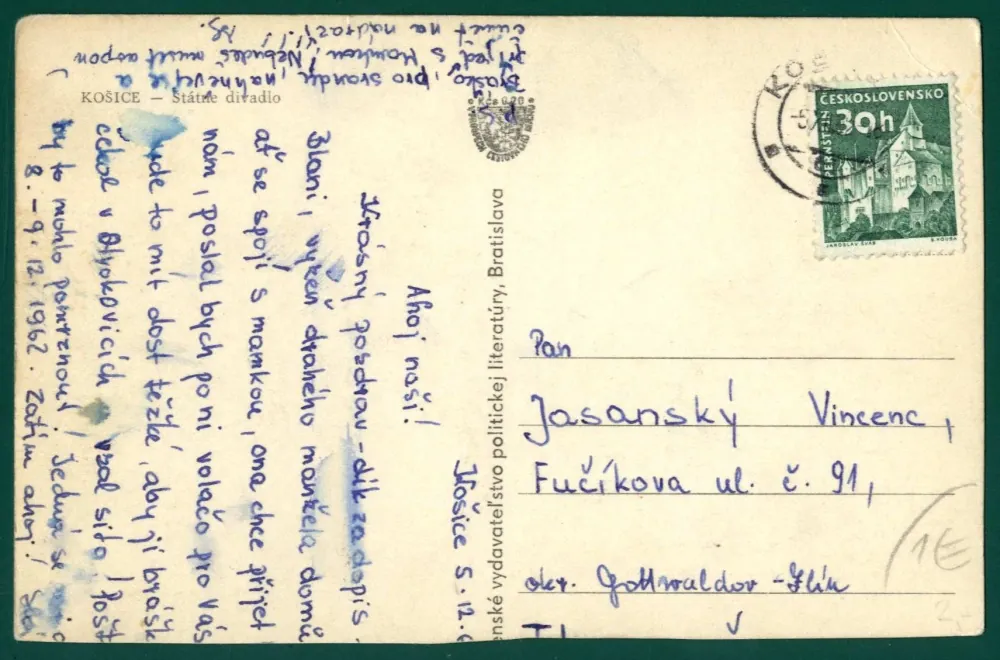 KOŠICE — Štátne divadlo
Košice 5.12.6
Ahoj naši!
Krásný pozdrav - dík za dopis.
Blani, vyžeň drahého manžela domů
ať se spojí s mamkou, ona chce přijet
nám, poslal bych po ní volačo pro Vás
bude to mít dost těžké, aby jí brášk
čekal v Otrokovicích vzal si to!
by to mohlo pomrznout! Jedná se o
8. - 9. 12. 1962. Zatím ahoj!
P.S.
Braško, pro srandu, nahněvej se a
přijeď s Mamkou! Nebudeš muset aspoň
čučet na nádraží!!!
Kčs 0,20
enské vydavateľstvo politickej literatúry, Bratislava
KOŠ
ČESKOSLOVENSKO
30h
PERNŠTEJN
JAROSLAV ŠVÁB
Pan
Jasanský Vincenc,
Fučíkova ul. č. 91,
okr. Gottwaldov - Zlín
1€
2,-